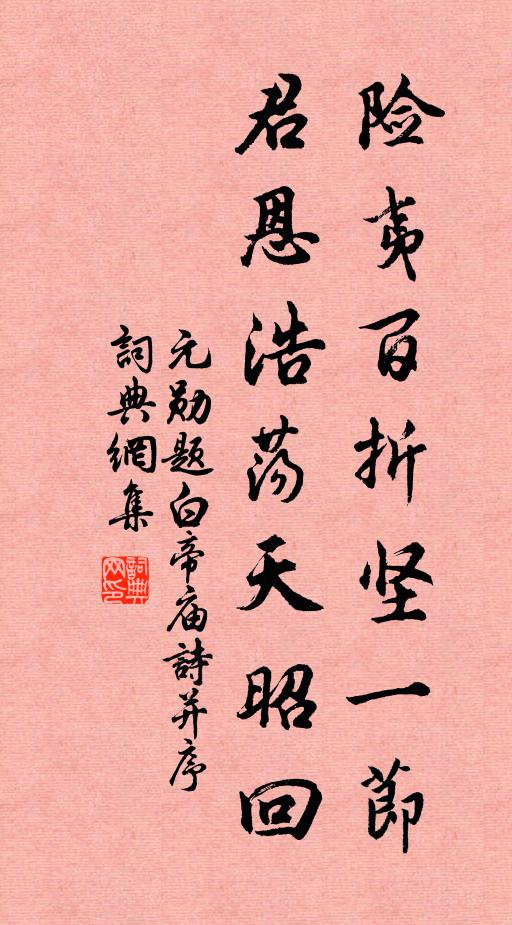 险夷百折坚一節
君恩浩荡天昭回
元勋题白帝庙詩并序
詞典網集
詞典網印